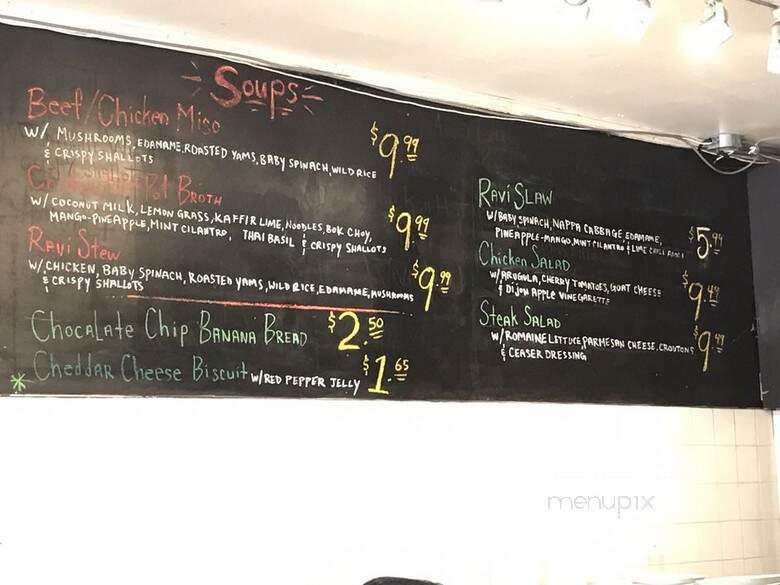 Soups
Beef/Chicken Miso
W/ MUSHROOMS, EDANAME, ROASTED YAMS, BABY SPINACH, WILD RICE
& CRISPY SHALLOTS
$9.99
Pot BROTH
W/ COCONUT MILK, LEMON GRASS, KAFFIR LIME, NOODLES, BOK CHOY,
MANGO-PINEAPPLE, MINT CILANTRO, THAI BASIL & CRISPY SHALLOTS
$9.99
Ravi Stew
W/ CHICKEN, BABY SPINACH, ROASTED YAMS, WILD RICE, EDAMAME, MUSHROOMS
& CRISPY SHALLOTS
$9.99
Chocalate Chip BANANA BREAD $2.50
* Cheddar Cheese Biscuit W/ RED PEPPER JELLY $1.65
RAVI SLAW
W/ BABY SPINACH, NAPPA CABBAGE EDAMAME,
PINEAPPLE-MANGO, MINT CILANTRO & LIME CHILI
$5.99
Chicken SALAD
W/ ARUGULA, CHERRY TOMATOES, GOAT CHEESE
& DIJON APPLE VINEGARETTE
$9.49
Steak SALAD
W/ ROMAINE LETTUCE, PARMESAN CHEESE, CROUTONS
& CEASER DRESSING
$9.49
menupix